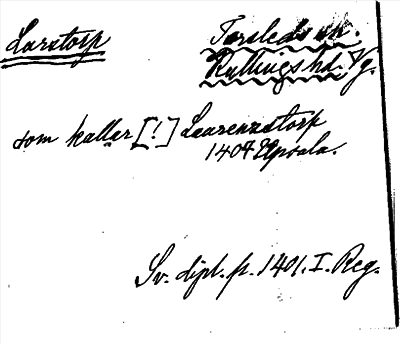 Larstorp
Forsleds sn.
Kullings hd. Vg.
som kallar [!] Laurenzstorp
1404 Upsala.
Sv. dipl. fr. 1401. I. Reg.